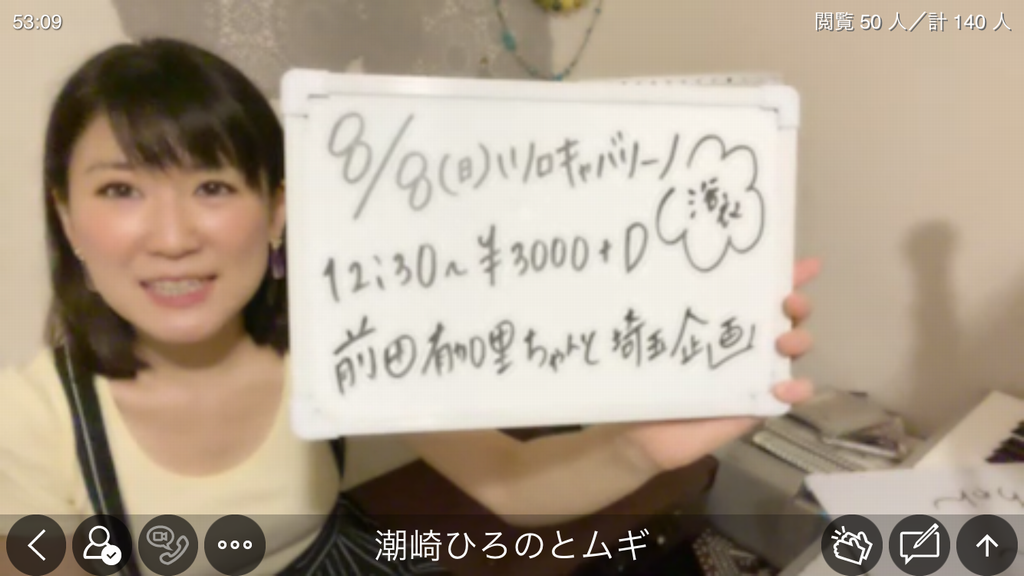 53:09
閲覧 50 人／計 140 人
8/8(日)ソロキャバリーノ
渋谷
12:30~¥3000+D
前田有加里ちゃんと埼玉企画
潮崎ひろのとムギ